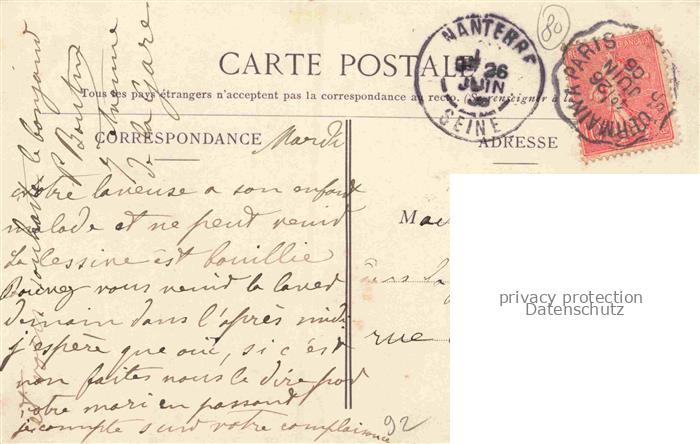 CARTE POSTALE
Tous les pays étrangers n'acceptent pas la correspondance au recto. (Se renseigner à la
CORRESPONDANCE
ADRESSE
Mardi
votre laveuse a son enfant
malade et ne peut venir
La lessive est bouillie
Pouvez vous venir la laver
demain dans l'après midi
j'espère que oui, si c'est
non faites nous le dire par
votre mari en passant
je compte sur votre complaisance
souhaite le bonjour
de la gare
NANTERRE
26
JUIN
SEINE
ST GERMAIN A PARIS
26
JUIN
80
M
rue
92
privacy protection
Datenschutz